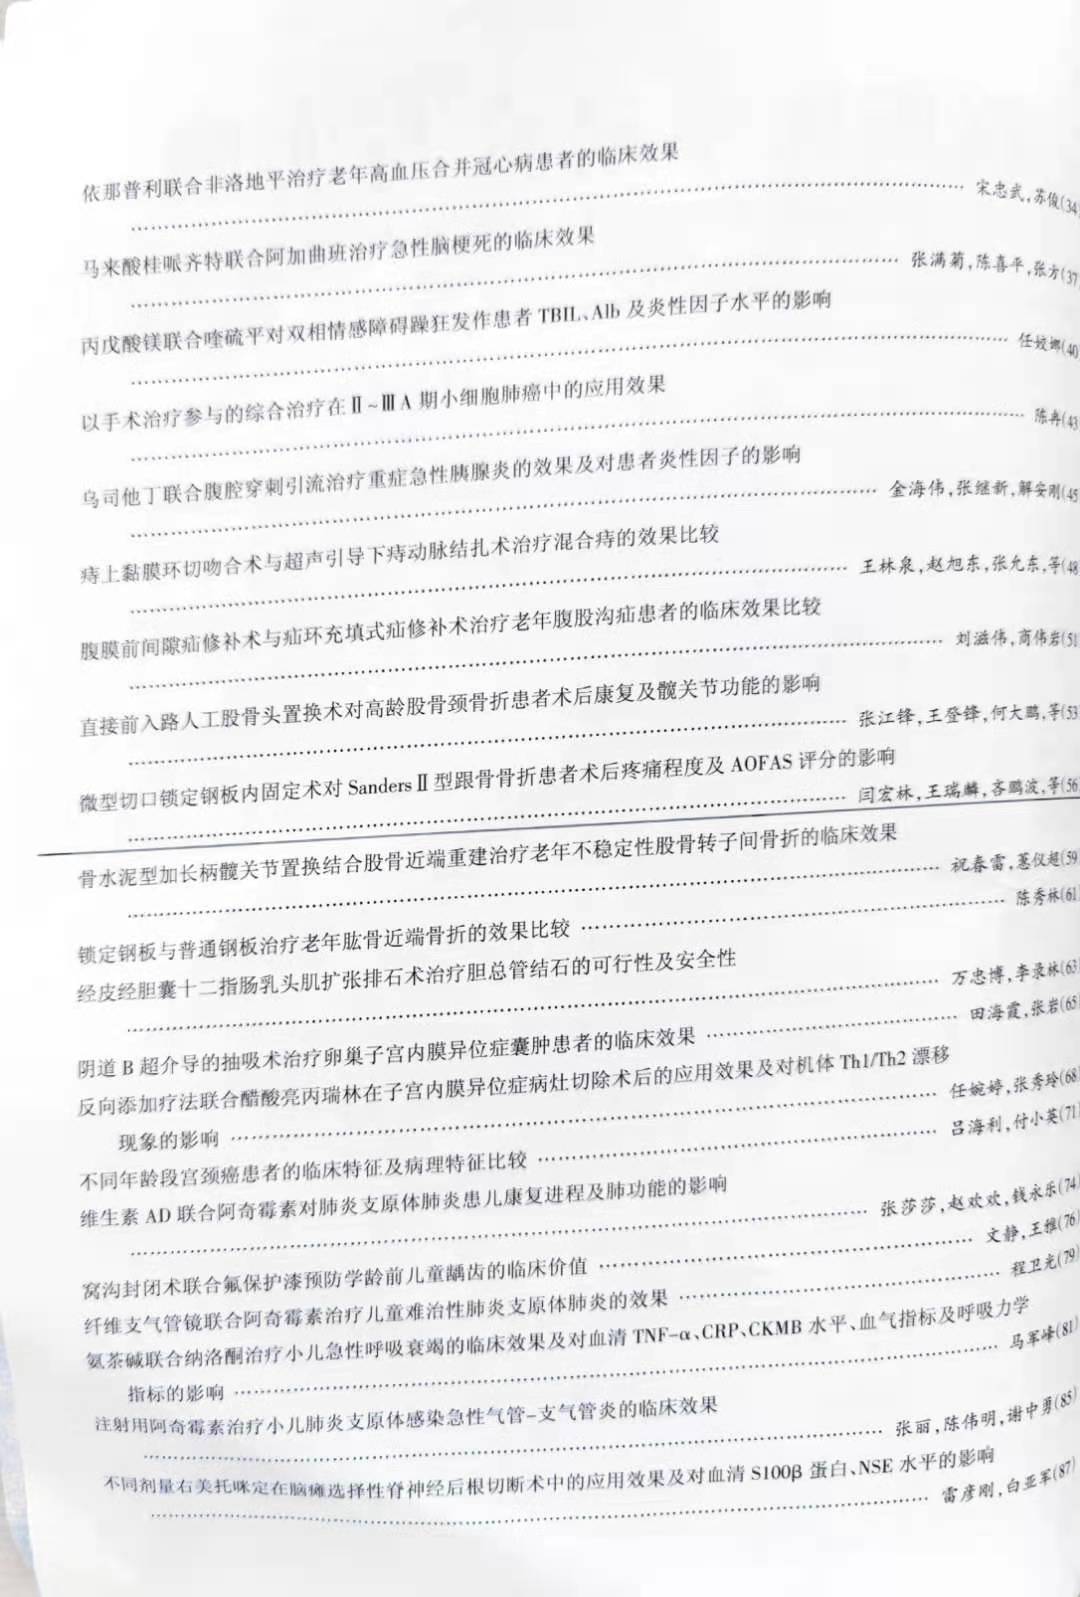 依那普利联合非洛地平治疗老年高血压合并冠心病患者的临床效果
宋忠武,苏俊(34
马来酸桂哌齐特联合阿加曲班治疗急性脑梗死的临床效果
张满菊,陈喜平,张方(37
丙戊酸镁联合喹硫平对双相情感障碍躁狂发作患者 TBIL、Alb 及炎性因子水平的影响
任姣娜(40
以手术治疗参与的综合治疗在Ⅱ~ⅢA 期小细胞肺癌中的应用效果
陈冉(43
乌司他丁联合腹腔穿刺引流治疗重症急性胰腺炎的效果及对患者炎性因子的影响
金海伟,张继新,解安刚(45
痔上黏膜环切吻合术与超声引导下痔动脉结扎术治疗混合痔的效果比较
王林泉,赵旭东,张允东,等(48
腹膜前间隙疝修补术与疝环充填式疝修补术治疗老年腹股沟疝患者的临床效果比较
刘滋伟,商伟岩(51
直接前入路人工股骨头置换术对高龄股骨颈骨折患者术后康复及髋关节功能的影响
张江锋,王登锋,何大鹏,等(53
微型切口锁定钢板内固定术对 SandersⅡ型跟骨骨折患者术后疼痛程度及 AOFAS 评分的影响
闫宏林,王瑞麟,吝鹏波,等(56
骨水泥型加长柄髋关节置换结合股骨近端重建治疗老年不稳定性股骨转子间骨折的临床效果
祝春雷,葸仪超(59
锁定钢板与普通钢板治疗老年肱骨近端骨折的效果比较 陈秀林(61
经皮经胆囊十二指肠乳头肌扩张排石术治疗胆总管结石的可行性及安全性
万忠博,李录林(63
阴道 B 超介导的抽吸术治疗卵巢子宫内膜异位症囊肿患者的临床效果 田海霞,张岩(65
反向添加疗法联合醋酸亮丙瑞林在子宫内膜异位症病灶切除术后的应用效果及对机体 Th1/Th2 漂移
现象的影响 任婉婷,张秀玲(68
不同年龄段宫颈癌患者的临床特征及病理特征比较 吕海利,付小英(71
维生素 AD 联合阿奇霉素对肺炎支原体肺炎患儿康复进程及肺功能的影响
张莎莎,赵欢欢,钱永乐(74
窝沟封闭术联合氟保护漆预防学龄前儿童龋齿的临床价值 文静,王雅(76
纤维支气管镜联合阿奇霉素治疗儿童难治性肺炎支原体肺炎的效果 程卫光(79)
氨茶碱联合纳洛酮治疗小儿急性呼吸衰竭的临床效果及对血清 TNF-α、CRP、CKMB 水平、血气指标及呼吸力学
指标的影响 马军峰(81)
注射用阿奇霉素治疗小儿肺炎支原体感染急性气管-支气管炎的临床效果
张丽,陈伟明,谢中勇(85)
不同剂量右美托咪定在脑瘫选择性脊神经后根切断术中的应用效果及对血清 S100β 蛋白、NSE 水平的影响
雷彦刚,白亚军(87)